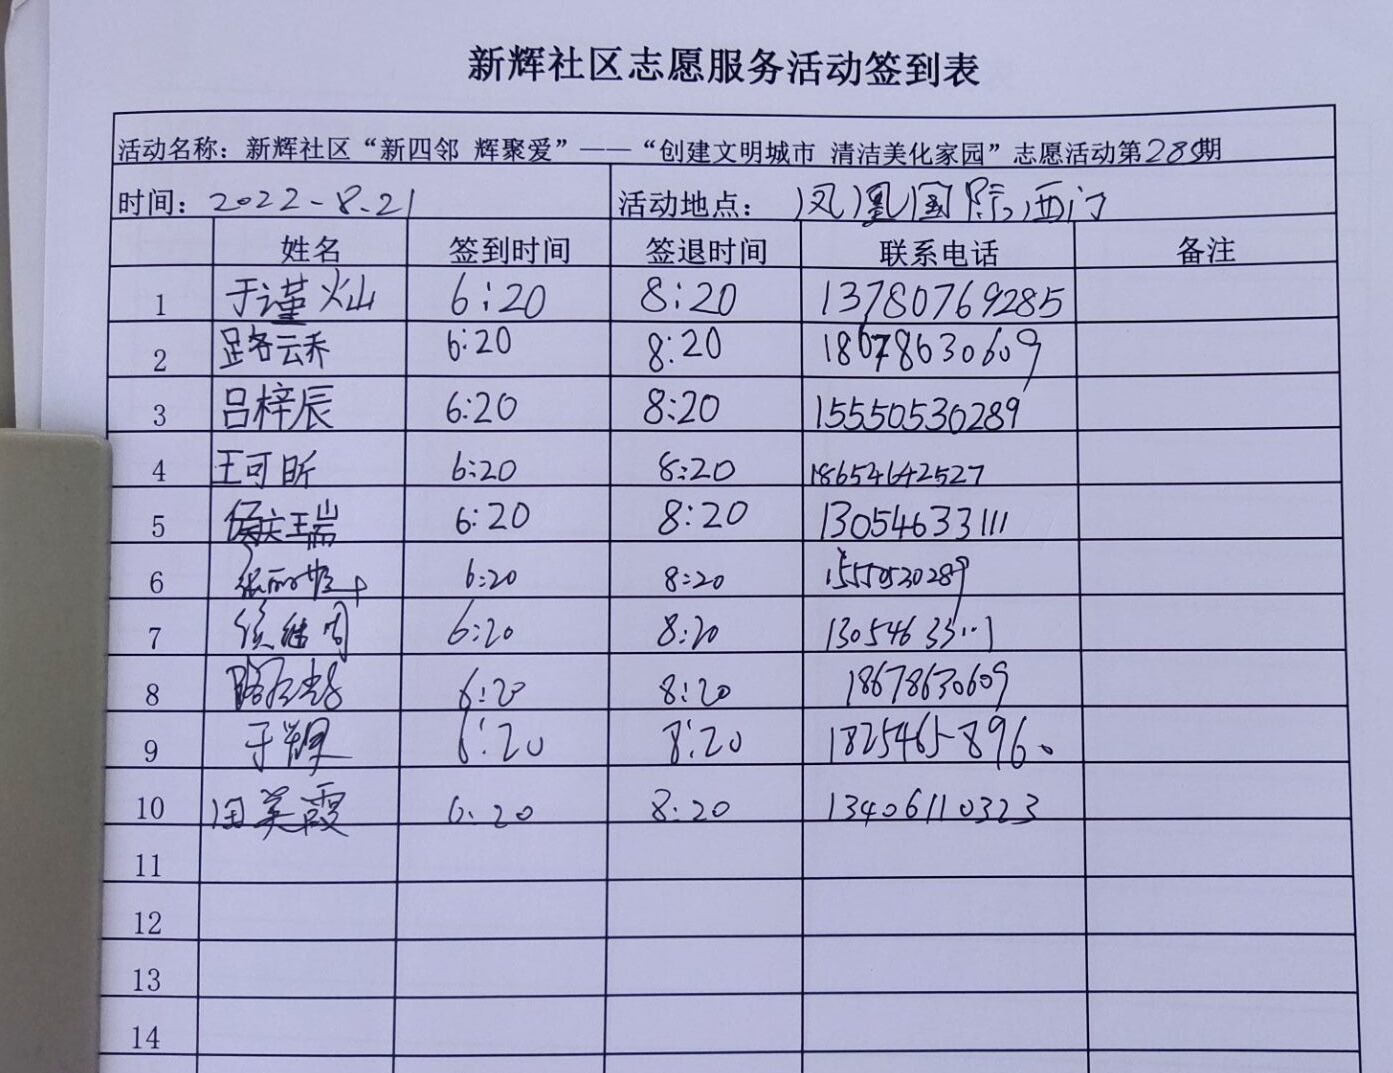 新辉社区志愿服务活动签到表
活动名称：新辉社区“新四邻 辉聚爱”——“创建文明城市 清洁美化家园”志愿活动第 期
时间：2022-8.21 活动地点：凤凰国际西门
姓名 签到时间 签退时间 联系电话 备注
1 于谨灿 6:20 8:20 13780769285
2 路云乔 6:20 8:20 18678630609
3 吕梓辰 6:20 8:20 15550530289
4 王可昕 6:20 8:20 18654642527
5 侯庆瑞 6:20 8:20 13054633111
6 6:20 8:20 15550530289
7 6:20 8:20 13054633111
8 6:20 8:20 18678630609
9 于 6:20 8:20 18254658960
10 田英霞 6:20 8:20 13406110323
11
12
13
14